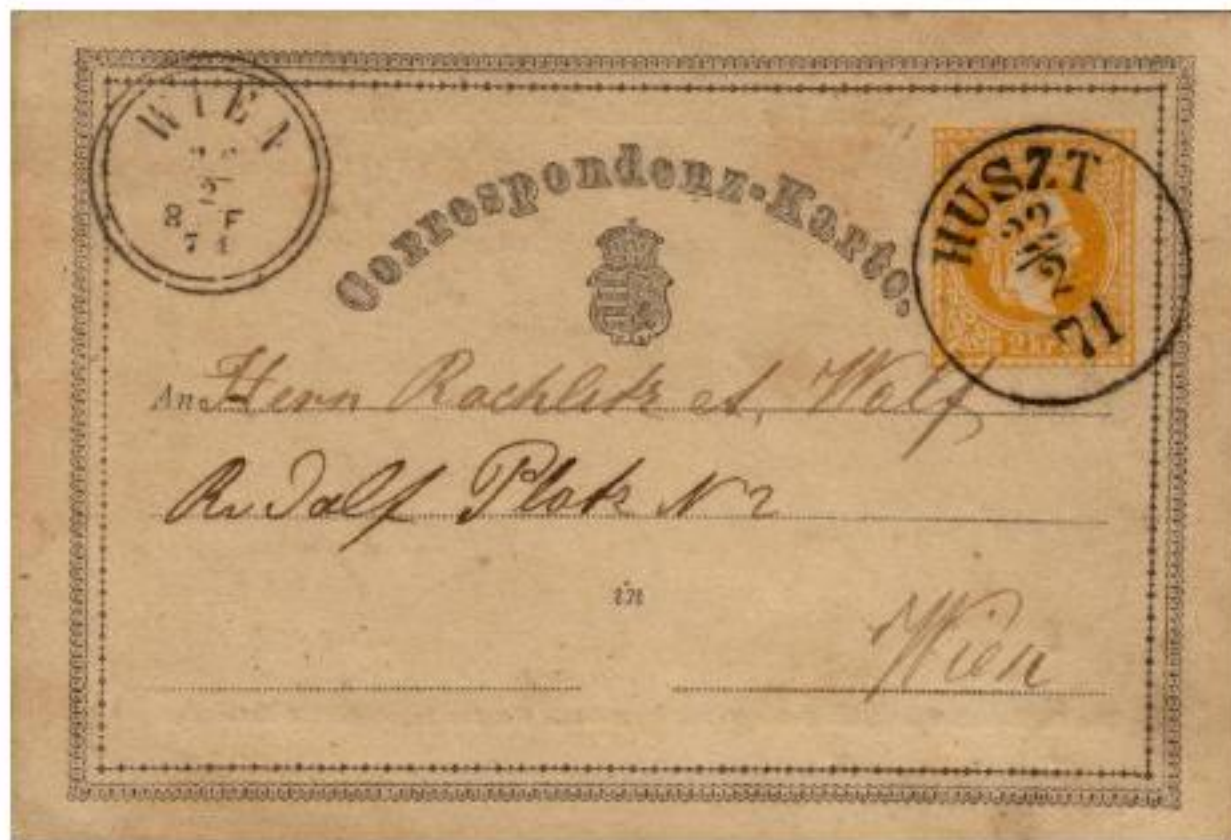 WIEN
2
8 F
7 1
Correspondenz-Karte.
HUSZT
22
2
71
An Herrn Rachlitz et Wolf
Rudolf Platz N 2
in
Wien